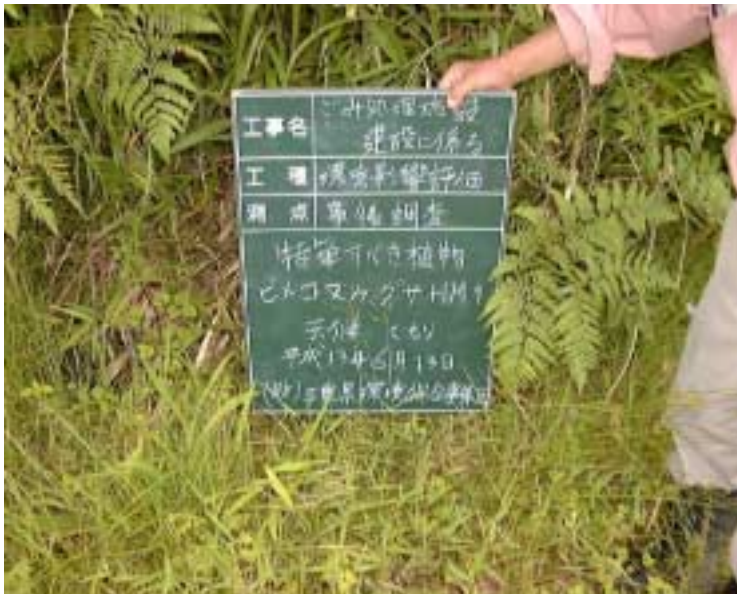 工事名 ごみ処理施設
建設に係る
工種 環境影響評価
測点 事後調査
特筆すべき植物
ヒメコヌカグサ HM
天候 くもり
平成13年6月13日
(財)三重県環境保全事業団